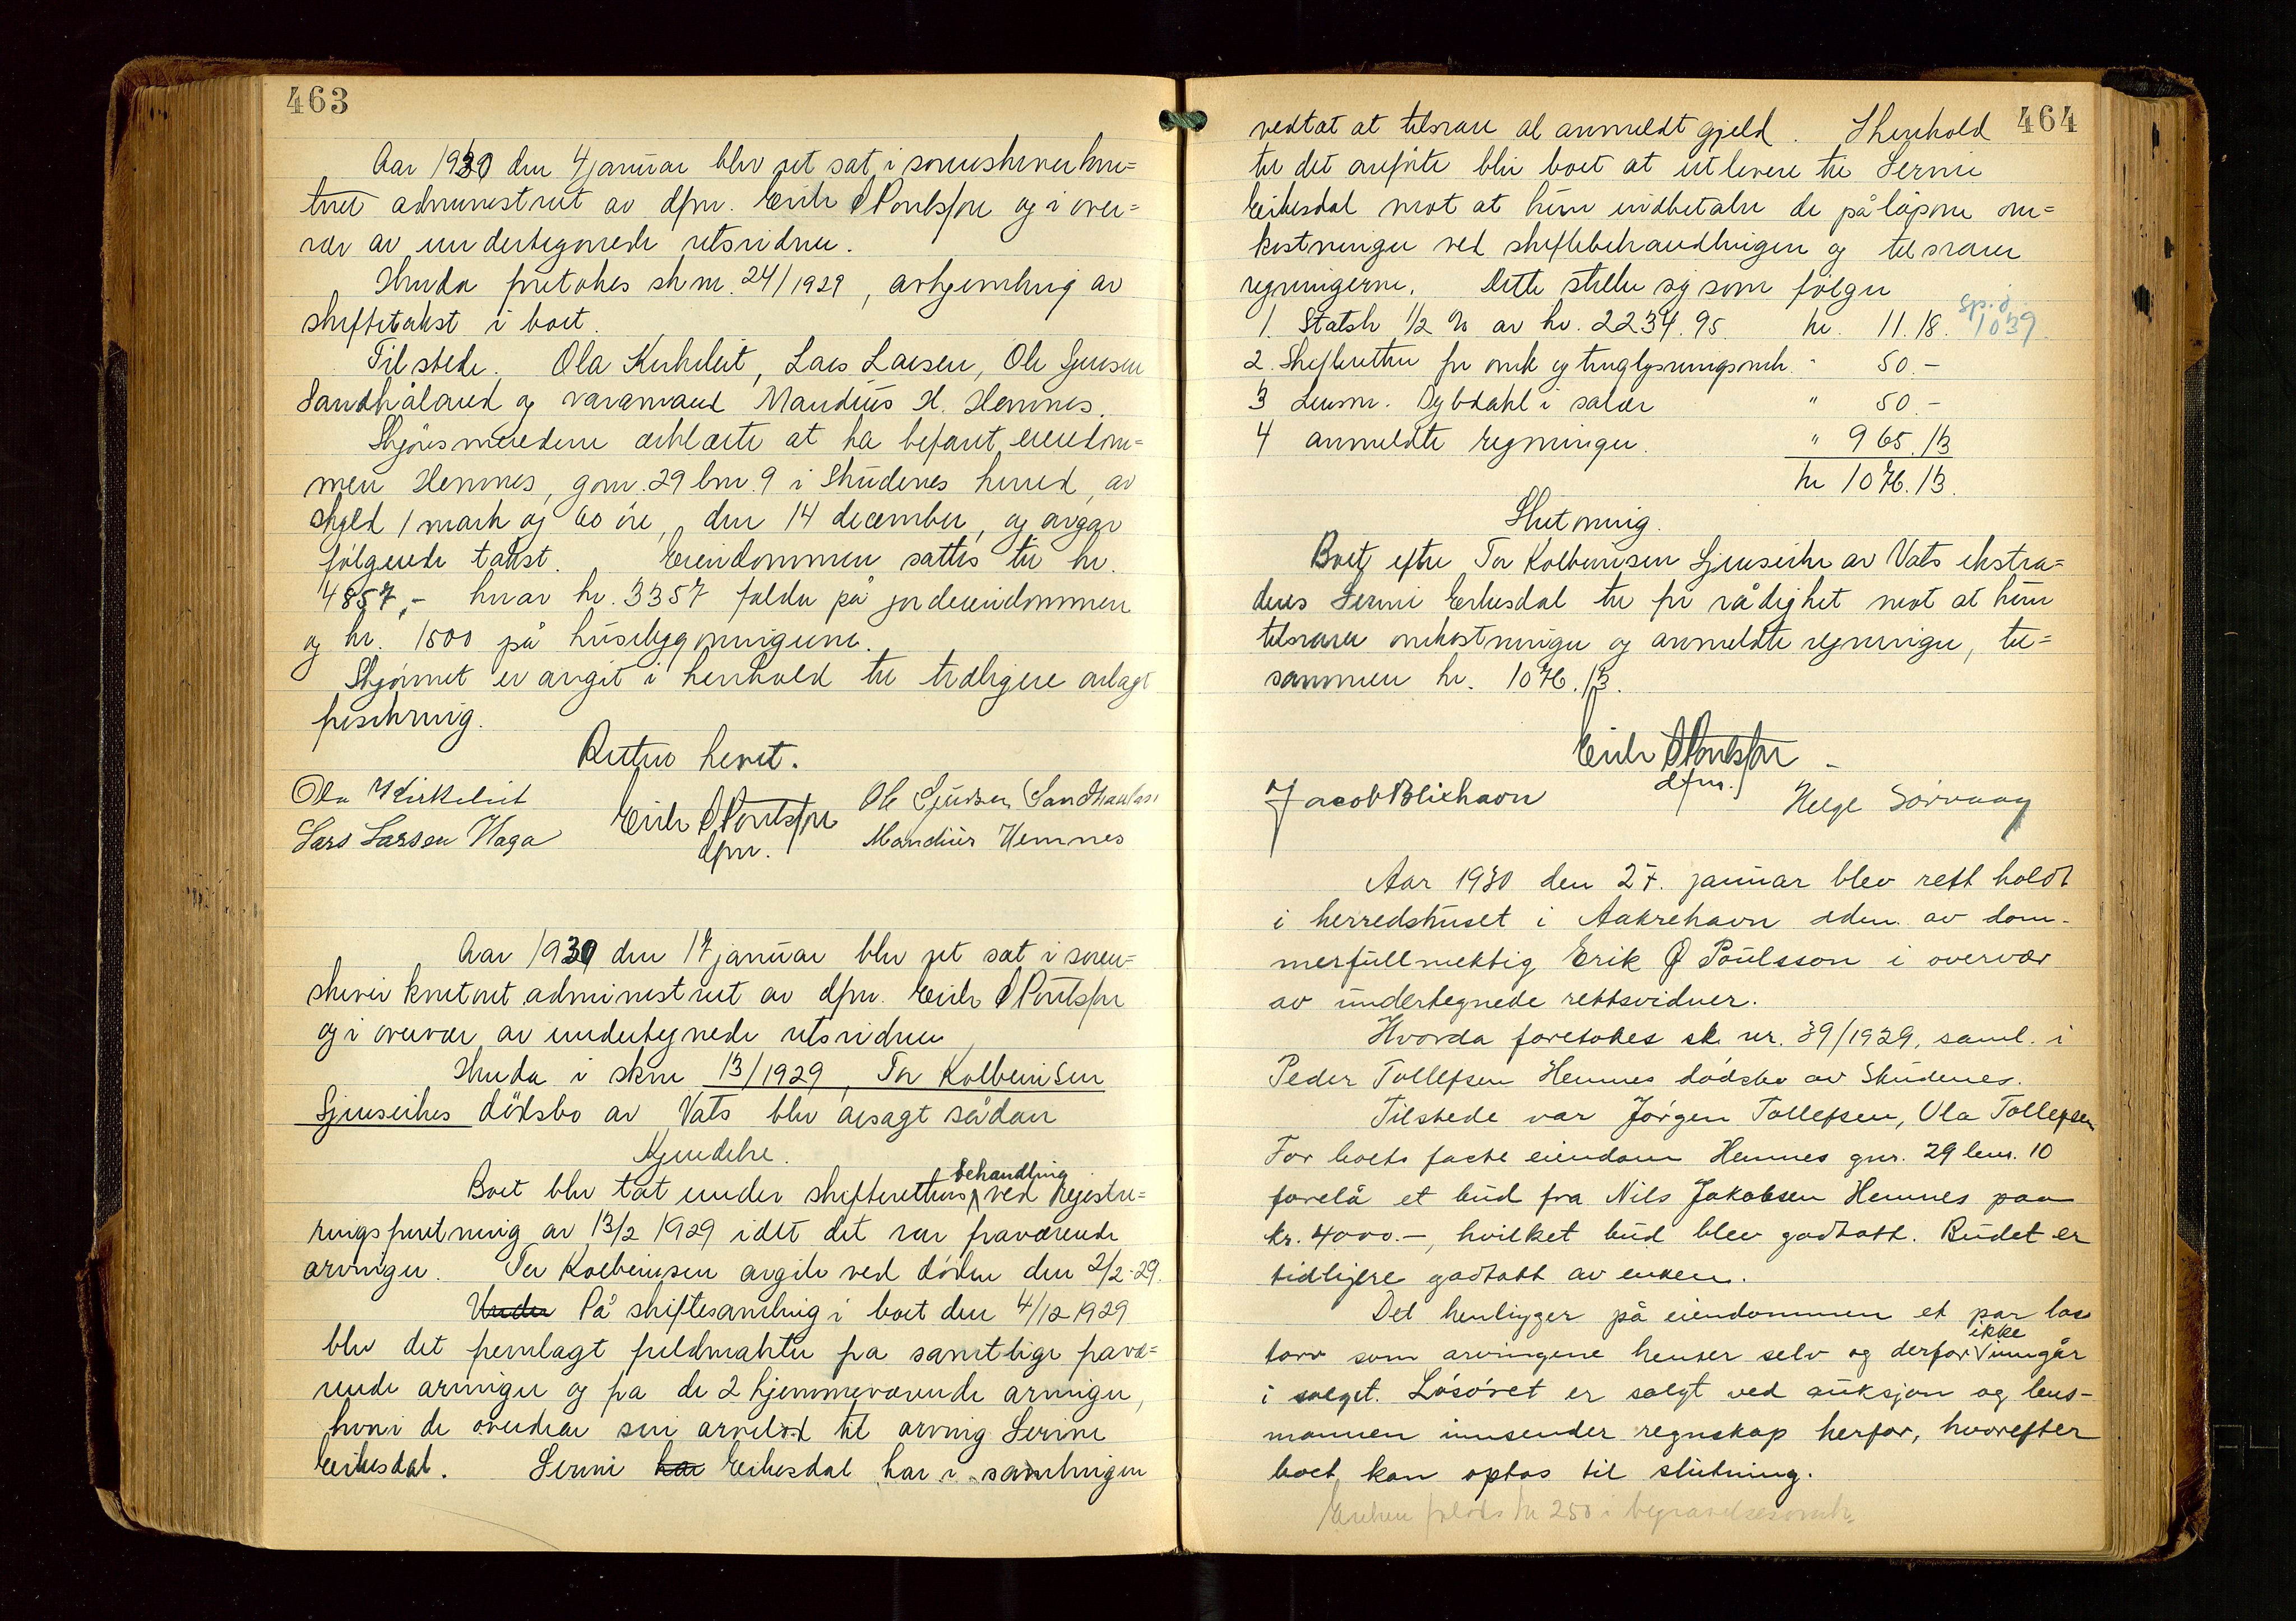 463
Aar 1930 den 4 januar blev ret sat i sorenskriverkon=
toret administrert av dfm. Erik Ø Poulsson og i over=
vær av undertegnede retsvidner.
Hvorda foretokes sk nr. 24/1929, avhjemling av
skiftetakst i boet.
Tilstede. Ola Kirkeleit, Lars Larsen, Ole Sjursen
Sandhåland og varamand Mandius H. Hemnes.
Skjønsmændene erklærte at ha befaret eiendom=
men Hemnes, gnr. 29 bnr. 9 i Skudenes herred, av
skyld 1 mark og 60 øre, den 14 december, og avgav
følgende takst. Eiendommen sattes til kr.
4857,- hvorav kr. 3357 falder på jordeiendommen
og kr. 1500 på husebygningerne.
Skjønnet er avgit i henhold til tidligere avlagt
forsikring.
Retten hevet.
Ola Kirkeleit
Erik Ø Poulsson
dfm.
Ole Sjursen Sandhaaland
Lars Larsen Haga
Mandius Hemnes
Aar 1930 den 17 januar blev ret sat i soren=
skriverkontoret administrert av dfm. Erik Ø Poulsson
og i overvær av undertegnede retsvidner
Hvorda i sknr 13/1929, Tor Kolbeinsen
Sjurseikes dödsbo av Vats blev avsagt sådan
Kjendelse.
Boet blev tat under skifterettens behandling ved registre=
ringsforretning av 13/2 1929 idet det var fraværende
arvinger. Tor Kolbeinsen avgik ved døden den 2/2-29.
Under På skiftesamling i boet den 4/12 1929
blev det fremlagt fuldmakter fra samtlige fravæ=
rende arvinger og fra de 2 hjemmeværende arvinger,
hvori de overdrar sin arvelod til arving Serine
Eikesdal. Serine har Eikesdal har i samlingen
464
vedtat at tilsvare al anmeldt gjeld. I henhold
til det anførte blir boet at utlevere til Serine
Eikesdal mot at hun indbetaler de påløpne om=
kostninger ved skiftebehandlingen og tilsvarer
regningerne. Dette stiller sig som følger
1. Statsk 1/2 % av kr. 2234.95 kr. 11.18. Sp.d. 1039
2. Skifteretten for omk og tinglysningsomk. " 50.-
3 Lensm. Dybdahl i salær " 50.-
4 anmeldte regninger. " 965.13
kr 1076.13.
Slutning.
Boet efter Tor Kolbeinsen Sjurseike av Vats ekstra=
deres Serine Eikesdal til fri rådighet mot at hun
tilsvarer omkostninger og anmeldte regninger, til=
sammen kr. 1076.13.
Erik Ø Poulsson
dfm.
Jacob Blikhavn
Helge Sørvaag
Aar 1930 den 27. januar blev rett holdt
i herredshuset i Aakrehavn adm. av dom-
merfullmektig Erik Ø Poulsson i overvær
av undertegnede rettsvidner.
Hvorda foretokes sk. nr. 39/1929, saml. i
Peder Tollefsen Hemnes dødsbo av Skudenes.
Tilstede var Jørgen Tollefsen, Ola Tollefsen
For boets faste eiendom Hemnes gnr. 29 bnr. 10
forelå et bud fra Nils Jakobsen Hemnes paa
kr. 4000.-, hvilket bud blev godtatt. Budet er
tidligere godtatt av enken.
Det henligger på eiendommen et par lass
torv som arvingene henter selv og derfor ikke inngår
i salget. Løsøret er solgt ved auksjon og lens-
mannen innsender regnskap herfor, hvorefter
boet kan optas til slutning.
Enken fordrer kr 250 i begravelsesomk=